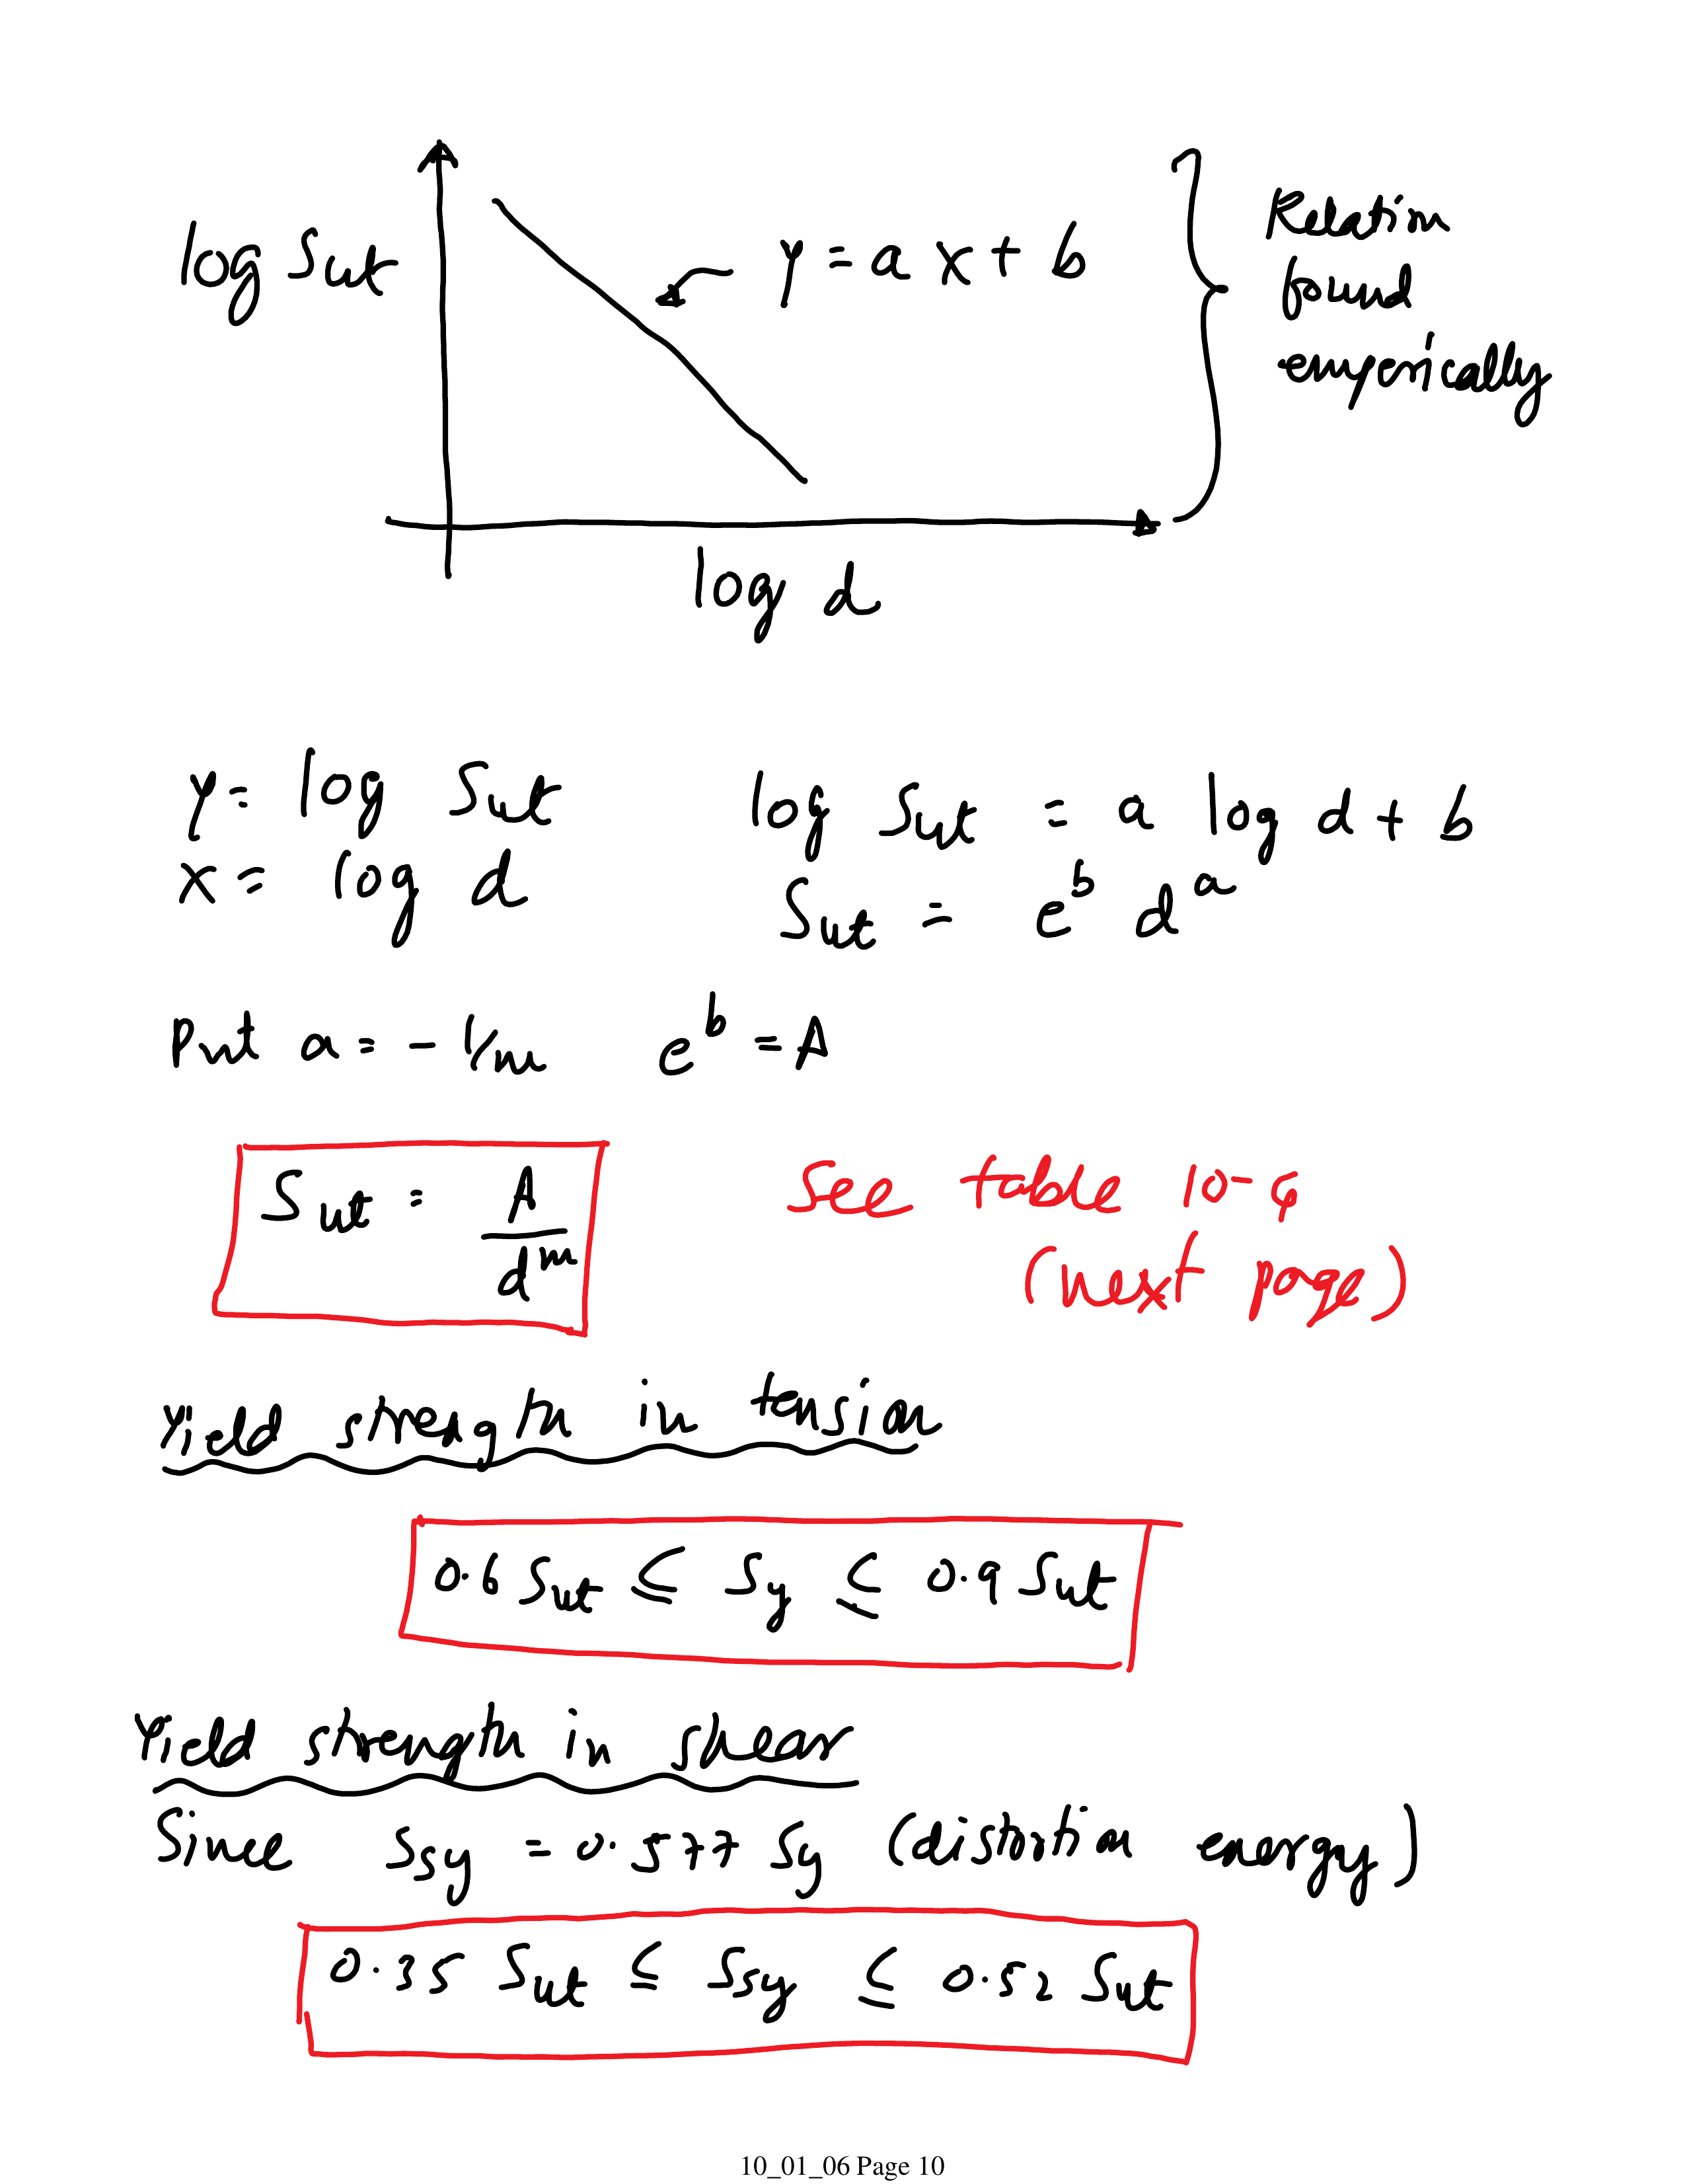 log Sut
y = a x + b
Relation
found
emperically
log d
y = log Sut
x = log d
log Sut = a log d + b
Sut = e^b d^a
Put a = - 1/m e^b = A
Sut = A / d^m
See table 10-4
(next page)
Yield strength in tension
0.6 Sut ≤ Sy ≤ 0.9 Sut
Yield strength in shear
Since Ssy = 0.577 Sy (distortion energy)
0.35 Sut ≤ Ssy ≤ 0.52 Sut
10_01_06 Page 10